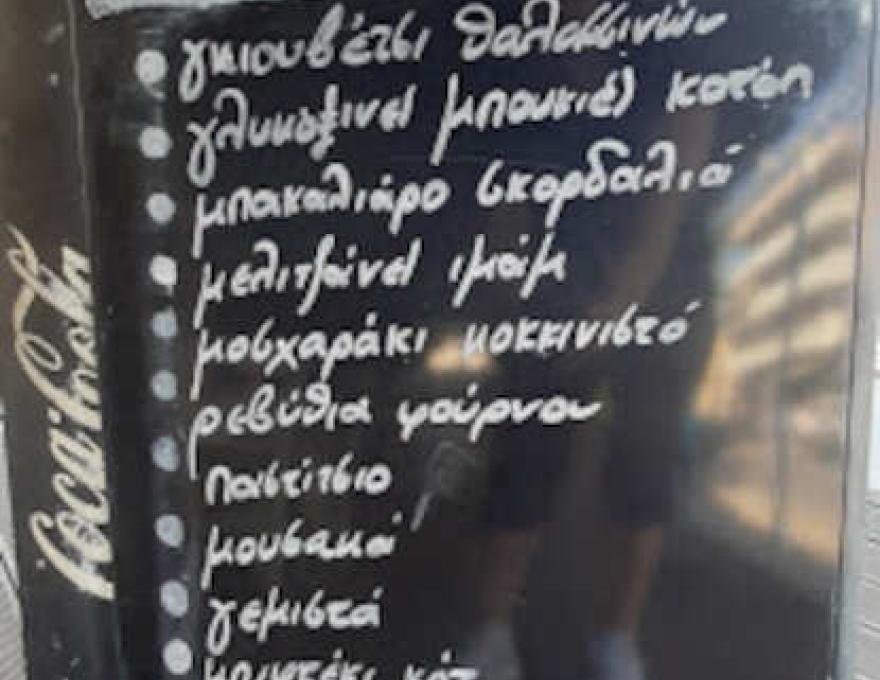 γκιουβέτσι θαλασσινών
γλυκόξινες μπουκιές κοτόπ
μπακαλιάρο σκορδαλιά
μελιτζάνες ιμάμ
μοσχαράκι κοκκινιστό
ρεβύθια φούρνου
παστίτσιο
μουσακά
γεμιστά
Coca-Cola